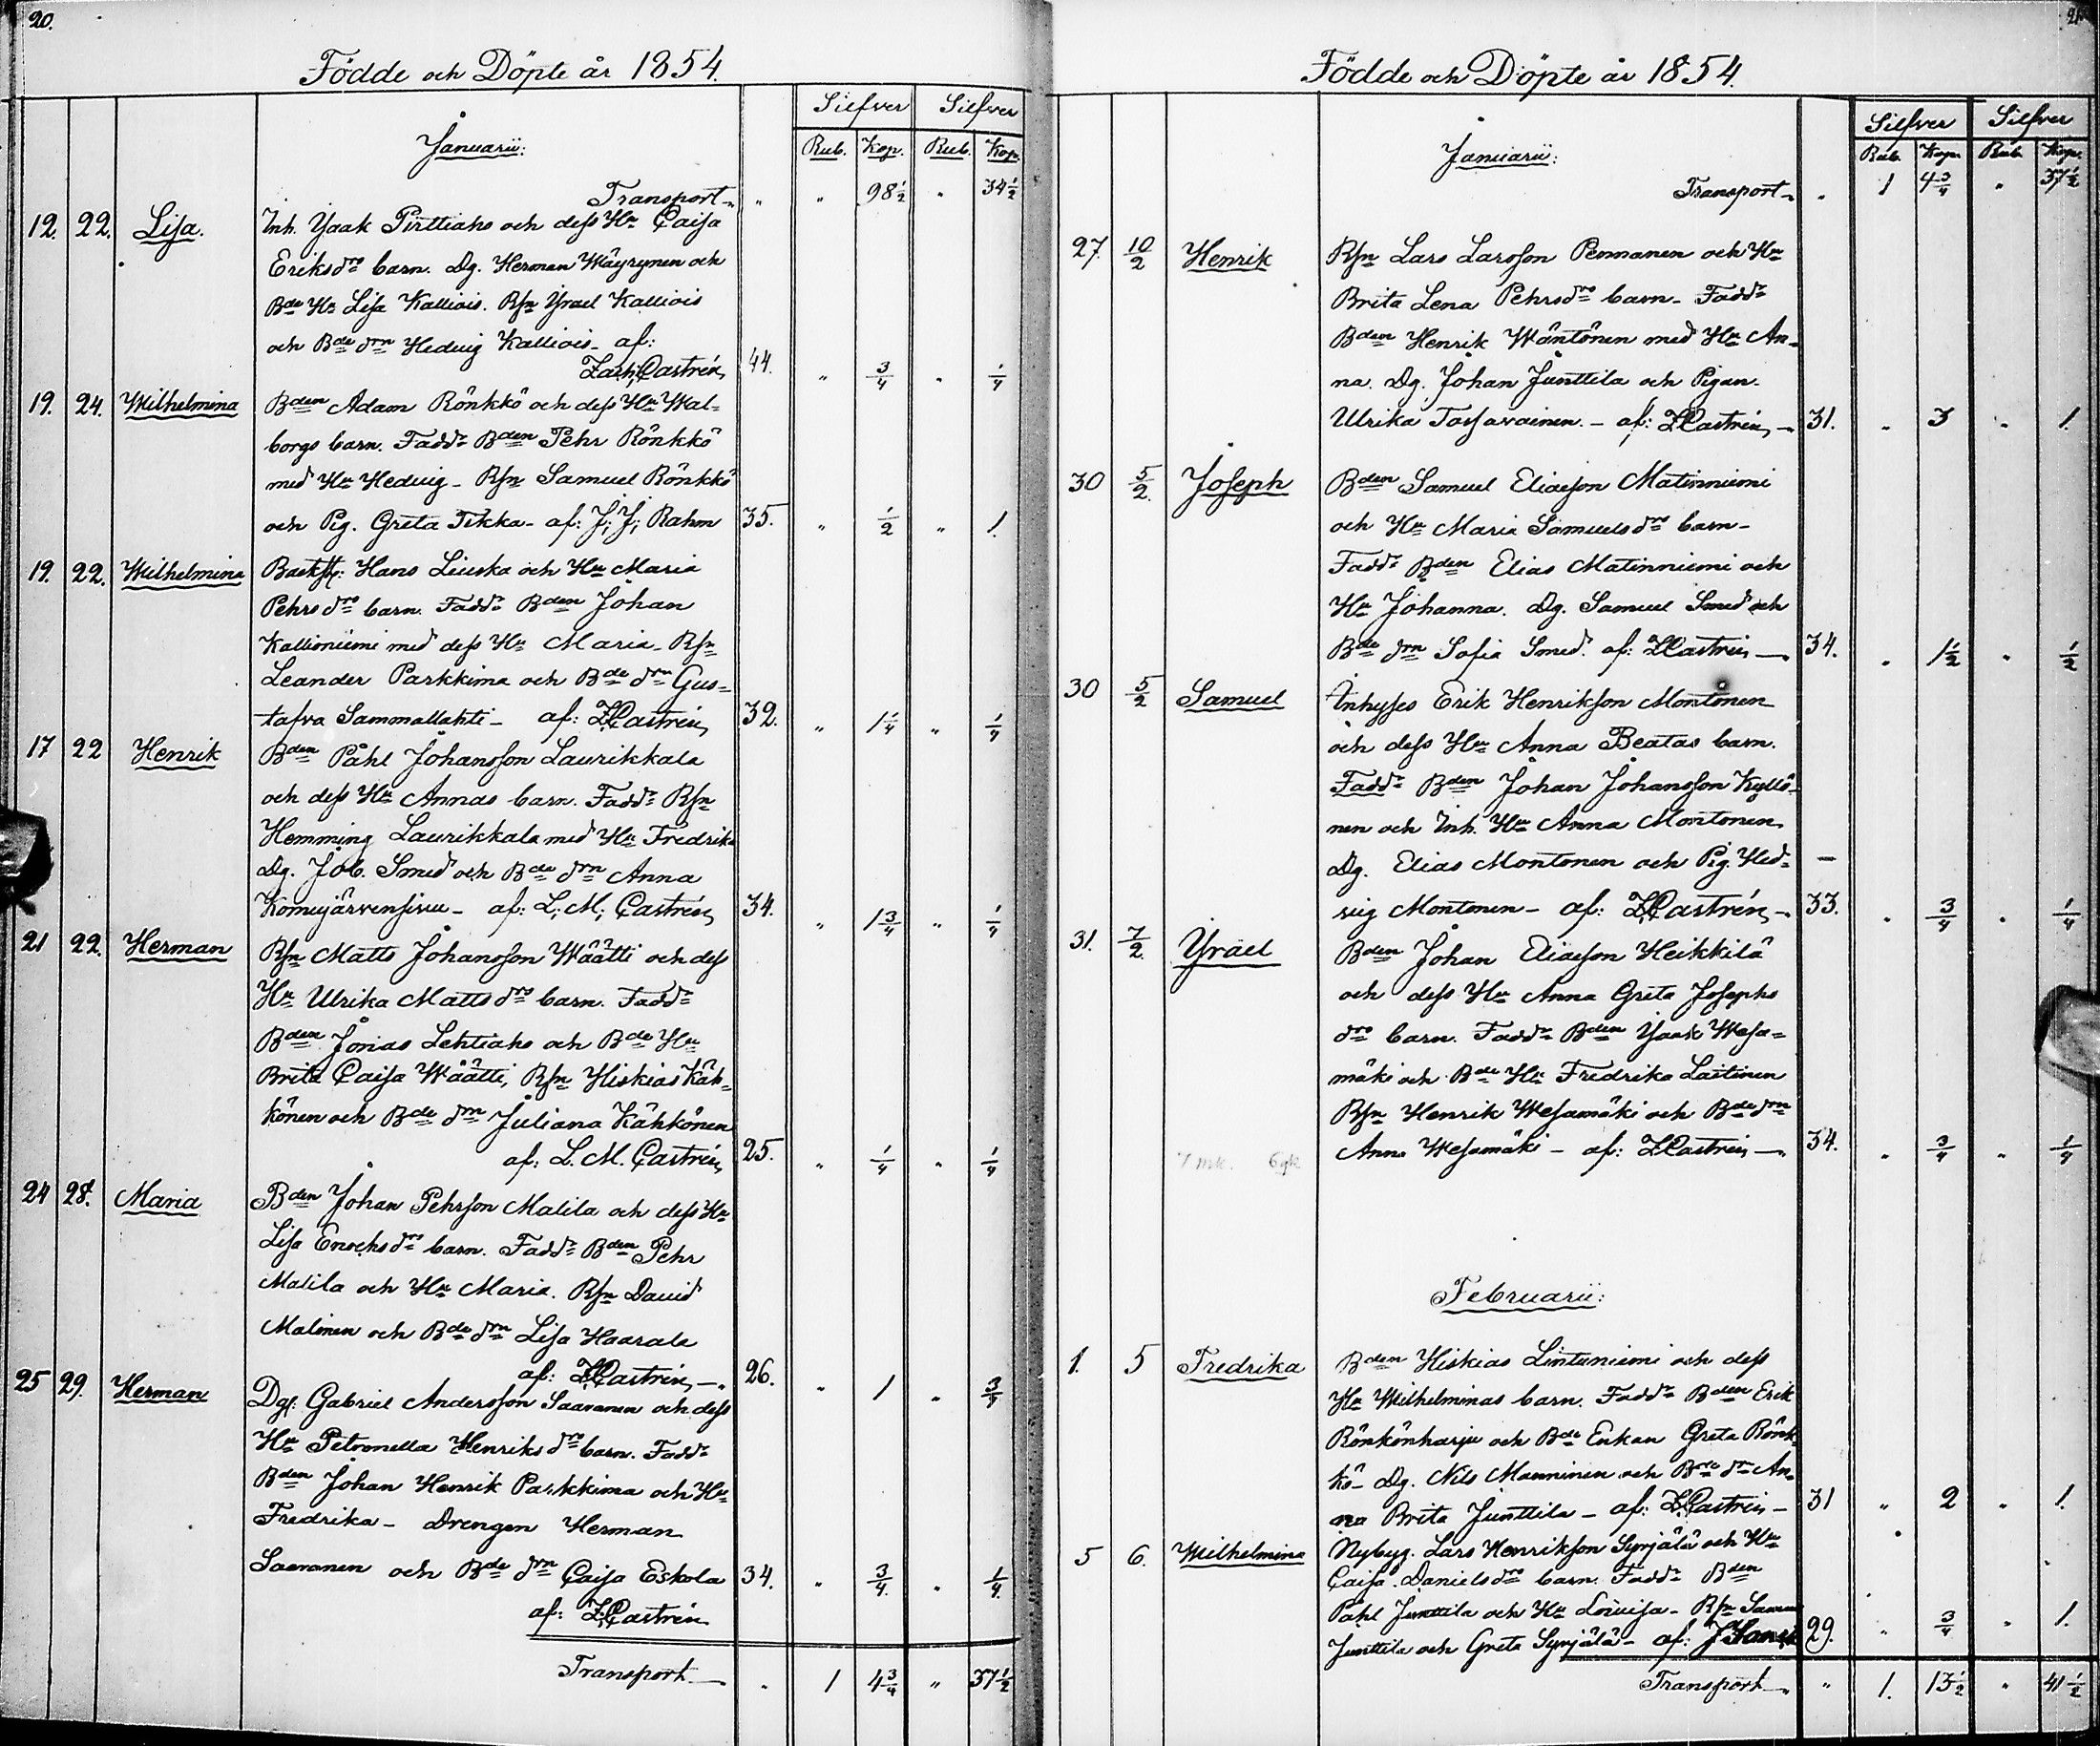 20.
Födde och Döpte år 1854.
Silfver Silfver
Januarii:
Rub. Kop. Rub. Kop.
Transport " " 98 1/2 " 34 1/2
12. 22. Lisa. Inh. Ysaak Pirttiaho och dess Hu Caisa
Eriksdrs barn. Dg. Herman Wäyrynen och
Bde Hu Lisa Kalliois. Rsn Ysrael Kalliois
och Bde drn Hedvig Kalliois - af:
Zach; Castrén, 44. " 3/4 " 1/4
19. 24. Wilhelmina Bden Adam Rönkkö och dess Hu Wal-
borgs barn. Faddr Bden Pehr Rönkkö
med Hu Hedvig - Rsn Samuel Rönkkö
och Pig. Greta Tikka - af: J; J; Rahm 35. " 1/2 " 1.
19. 22. Wilhelmina Backst: Hans Liuska och Hu Maria
Pehrsdrs barn. Faddr Bden Johan
Kallioniemi med dess Hu Maria - Rsn
Leander Parkkima och Bde drn Gus-
tafva Sammallahti - af: Z.Castrén, 32. " 1 1/4 " 1/4
17 22 Henrik Bden Påhl Johansson Laurikkala
och dess Hu Annas barn. Faddr Rsn
Hemming Laurikkala med Hu Fredrika
Dg. Job. Smed och Bde drn Anna
Komujärvensivu - af: L; M; Castrén, 34. " 1 3/4 " 1/4
21 22. Herman Rsn Matts Johansson Wäätti och dess
Hu Ulrika Mattsdrs barn. Faddr
Bden Jonas Lehtiaho och Bde Hu
Brita Caisa Wäätti, Rsn Hiskias Käh-
könen och Bde drn Juliana Kähkönen
af: L. M. Castrén, 25. " 1/4 " 1/4
24 28. Maria Bden Johan Pehrson Matila och dess Hu
Lisa Enochsdrs barn. Faddr Bden Pehr
Matila och Hu Maria. Rsn David
Malinen och Bde drn Lisa Haarala
af: Z.Castrén, - 26. " 1 " 3/4
25 29. Herman Dg: Gabriel Andersson Saavanen och dess
Hu Petronella Henriksdrs barn. Faddr
Bden Johan Henrik Parkkima och Hu
Fredrika - Drengen Herman
Saavanen och Bde drn Caisa Eskola 34. " 3/4. " 1/4.
af: Z.Castrén
Transport - " 1 4 3/4 " 37 1/2
21
Födde och Döpte år 1854.
Silfver Silfver
Januarii:
Rub. Kop. Rub. Kop.
Transport - " 1 4 3/4 " 37 1/2
27. 10/2 Henrik Rsn Lars Larsson Pennanen och Hu
Brita Lena Pehrsdrs barn - Faddr
Bden Henrik Wäntönen med Hu An-
na. Dg. Johan Junttila och Pigan.
Ulrika Tassavainen. - af: Z.Castrén, - 31. " 3 " 1.
30 5/2. Joseph Bden Samuel Eliasson Matinniemi
och Hu Maria Samuelsdrs barn -
Faddr Bden Elias Matinniemi och
Hu Johanna. Dg. Samuel Smed och
Bde drn Sofia Smed. af: Z.Castrén, - 34. " 1 1/2 " 1/2
30 5/2 Samuel Inhyses Erik Henrikson Montonen
och dess Hu Anna Beatas barn.
Faddr Bden Johan Johansson Kyllö-
nen och Inh. Hu Anna Montonen
Dg. Elias Montonen och Pig. Hed- -
vig Montonen - af: Z.Castrén, - 33. " 3/4 " 1/4
31. 7/2. Ysrael Bden Johan Eliasson Heikkilä
och dess Hu Anna Greta Josephs
drs barn. Faddr Bden Ysaak Wesa-
mäki och Bde Hu Fredrika Laitinen
Rsn Henrik Wesamäki och Bde drn
Anna Wesamäki - af: Z.Castrén, - 34. " 3/4 " 1/4
7 mk. 6 qk
Februarii:
1. 5 Fredrika Bden Hiskias Lintuniemi och dess
Hu Wilhelminas barn. Faddr Bden Erik
Rönkönharju och Bde Enkan Greta Rönk-
kö - Dg. Nils Manninen och Bde drn An-
na Brita Junttila - af: Z.Castrén - 31 " 2 " 1.
5 6. Wilhelmina Nybyg. Lars Henrikson Syrjälä och Hu
Caisa Danielsdrs barn. Faddr Bden
Påhl Junttila och Hu Lovisa - Rsn
Junttila och Greta Syrjälä - af: 29. " 3/4 " 1.
Transport - " 1. 13 1/2 " 41 1/2